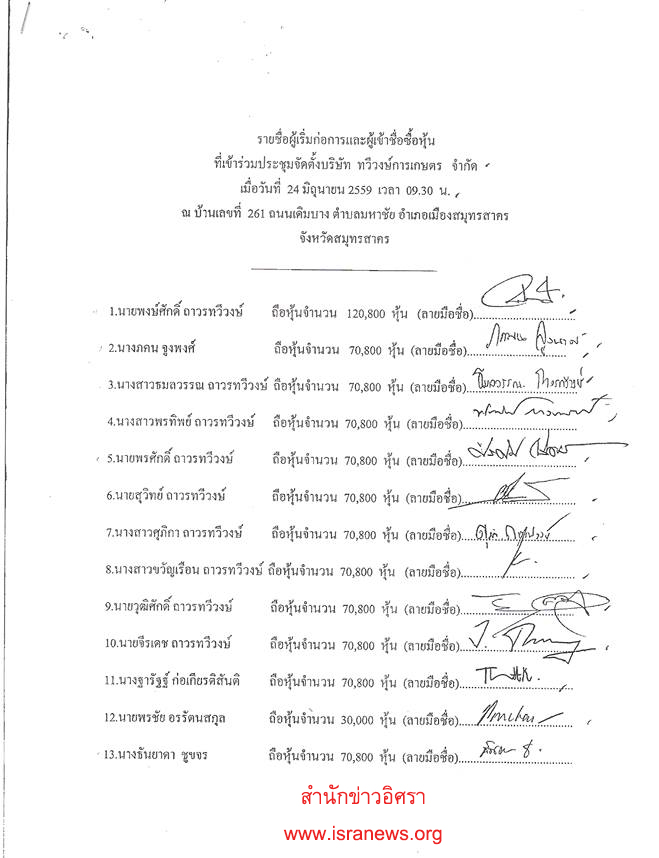 รายชื่อผู้เริ่มก่อการและผู้เข้าชื่อซื้อหุ้น
ที่เข้าร่วมประชุมจัดตั้งบริษัท ทวีวงษ์การเกษตร จำกัด
เมื่อวันที่ 24 มิถุนายน 2559 เวลา 09.30 น.
ณ บ้านเลขที่ 261 ถนนเดิมบาง ตำบลมหาชัย อำเภอเมืองสมุทรสาคร
จังหวัดสมุทรสาคร
1.นายพงษ์ศักดิ์ ถาวรทวีวงษ์ ถือหุ้นจำนวน 120,800 หุ้น (ลายมือชื่อ)
2.นางภคน จูงพงศ์ ถือหุ้นจำนวน 70,800 หุ้น (ลายมือชื่อ)
3.นางสาวธมลวรรณ ถาวรทวีวงษ์ ถือหุ้นจำนวน 70,800 หุ้น (ลายมือชื่อ)
4.นางสาวพรทิพย์ ถาวรทวีวงษ์ ถือหุ้นจำนวน 70,800 หุ้น (ลายมือชื่อ)
5.นายพรศักดิ์ ถาวรทวีวงษ์ ถือหุ้นจำนวน 70,800 หุ้น (ลายมือชื่อ)
6.นายสุวิทย์ ถาวรทวีวงษ์ ถือหุ้นจำนวน 70,800 หุ้น (ลายมือชื่อ)
7.นางสาวศุภิกา ถาวรทวีวงษ์ ถือหุ้นจำนวน 70,800 หุ้น (ลายมือชื่อ)
8.นางสาวขวัญเรือน ถาวรทวีวงษ์ ถือหุ้นจำนวน 70,800 หุ้น (ลายมือชื่อ)
9.นายวุฒิศักดิ์ ถาวรทวีวงษ์ ถือหุ้นจำนวน 70,800 หุ้น (ลายมือชื่อ)
10.นายจีรเดช ถาวรทวีวงษ์ ถือหุ้นจำนวน 70,800 หุ้น (ลายมือชื่อ)
11.นางฐารัฐฐ์ ก่อเกียรติสันติ ถือหุ้นจำนวน 70,800 หุ้น (ลายมือชื่อ)
12.นายพรชัย อรรัตนสกุล ถือหุ้นจำนวน 30,000 หุ้น (ลายมือชื่อ)
13.นางธันยาดา ชูขจร ถือหุ้นจำนวน 70,800 หุ้น (ลายมือชื่อ)
สำนักข่าวอิศรา
www.isranews.org